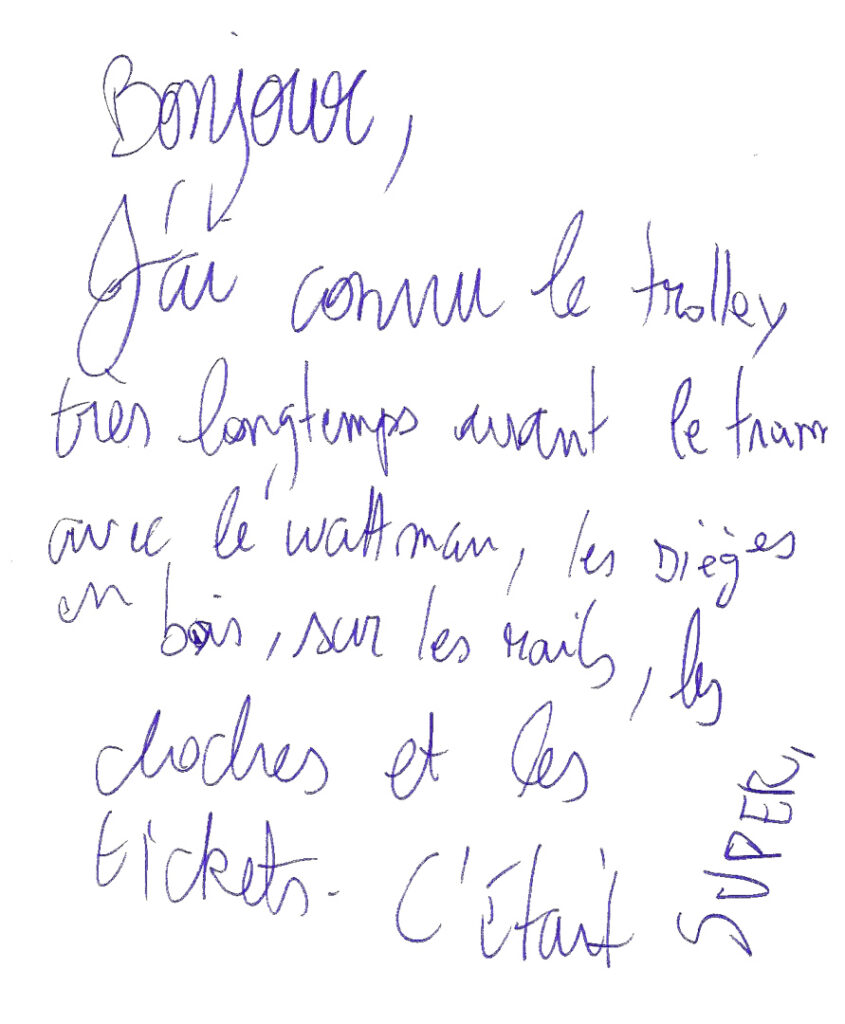 Bonjour,
J'ai connu le trolley
très longtemps avant le tram
avec le wattman, les sièges
en bois, sur les rails, les
cloches et les
tickets. C'Était
SUPER,